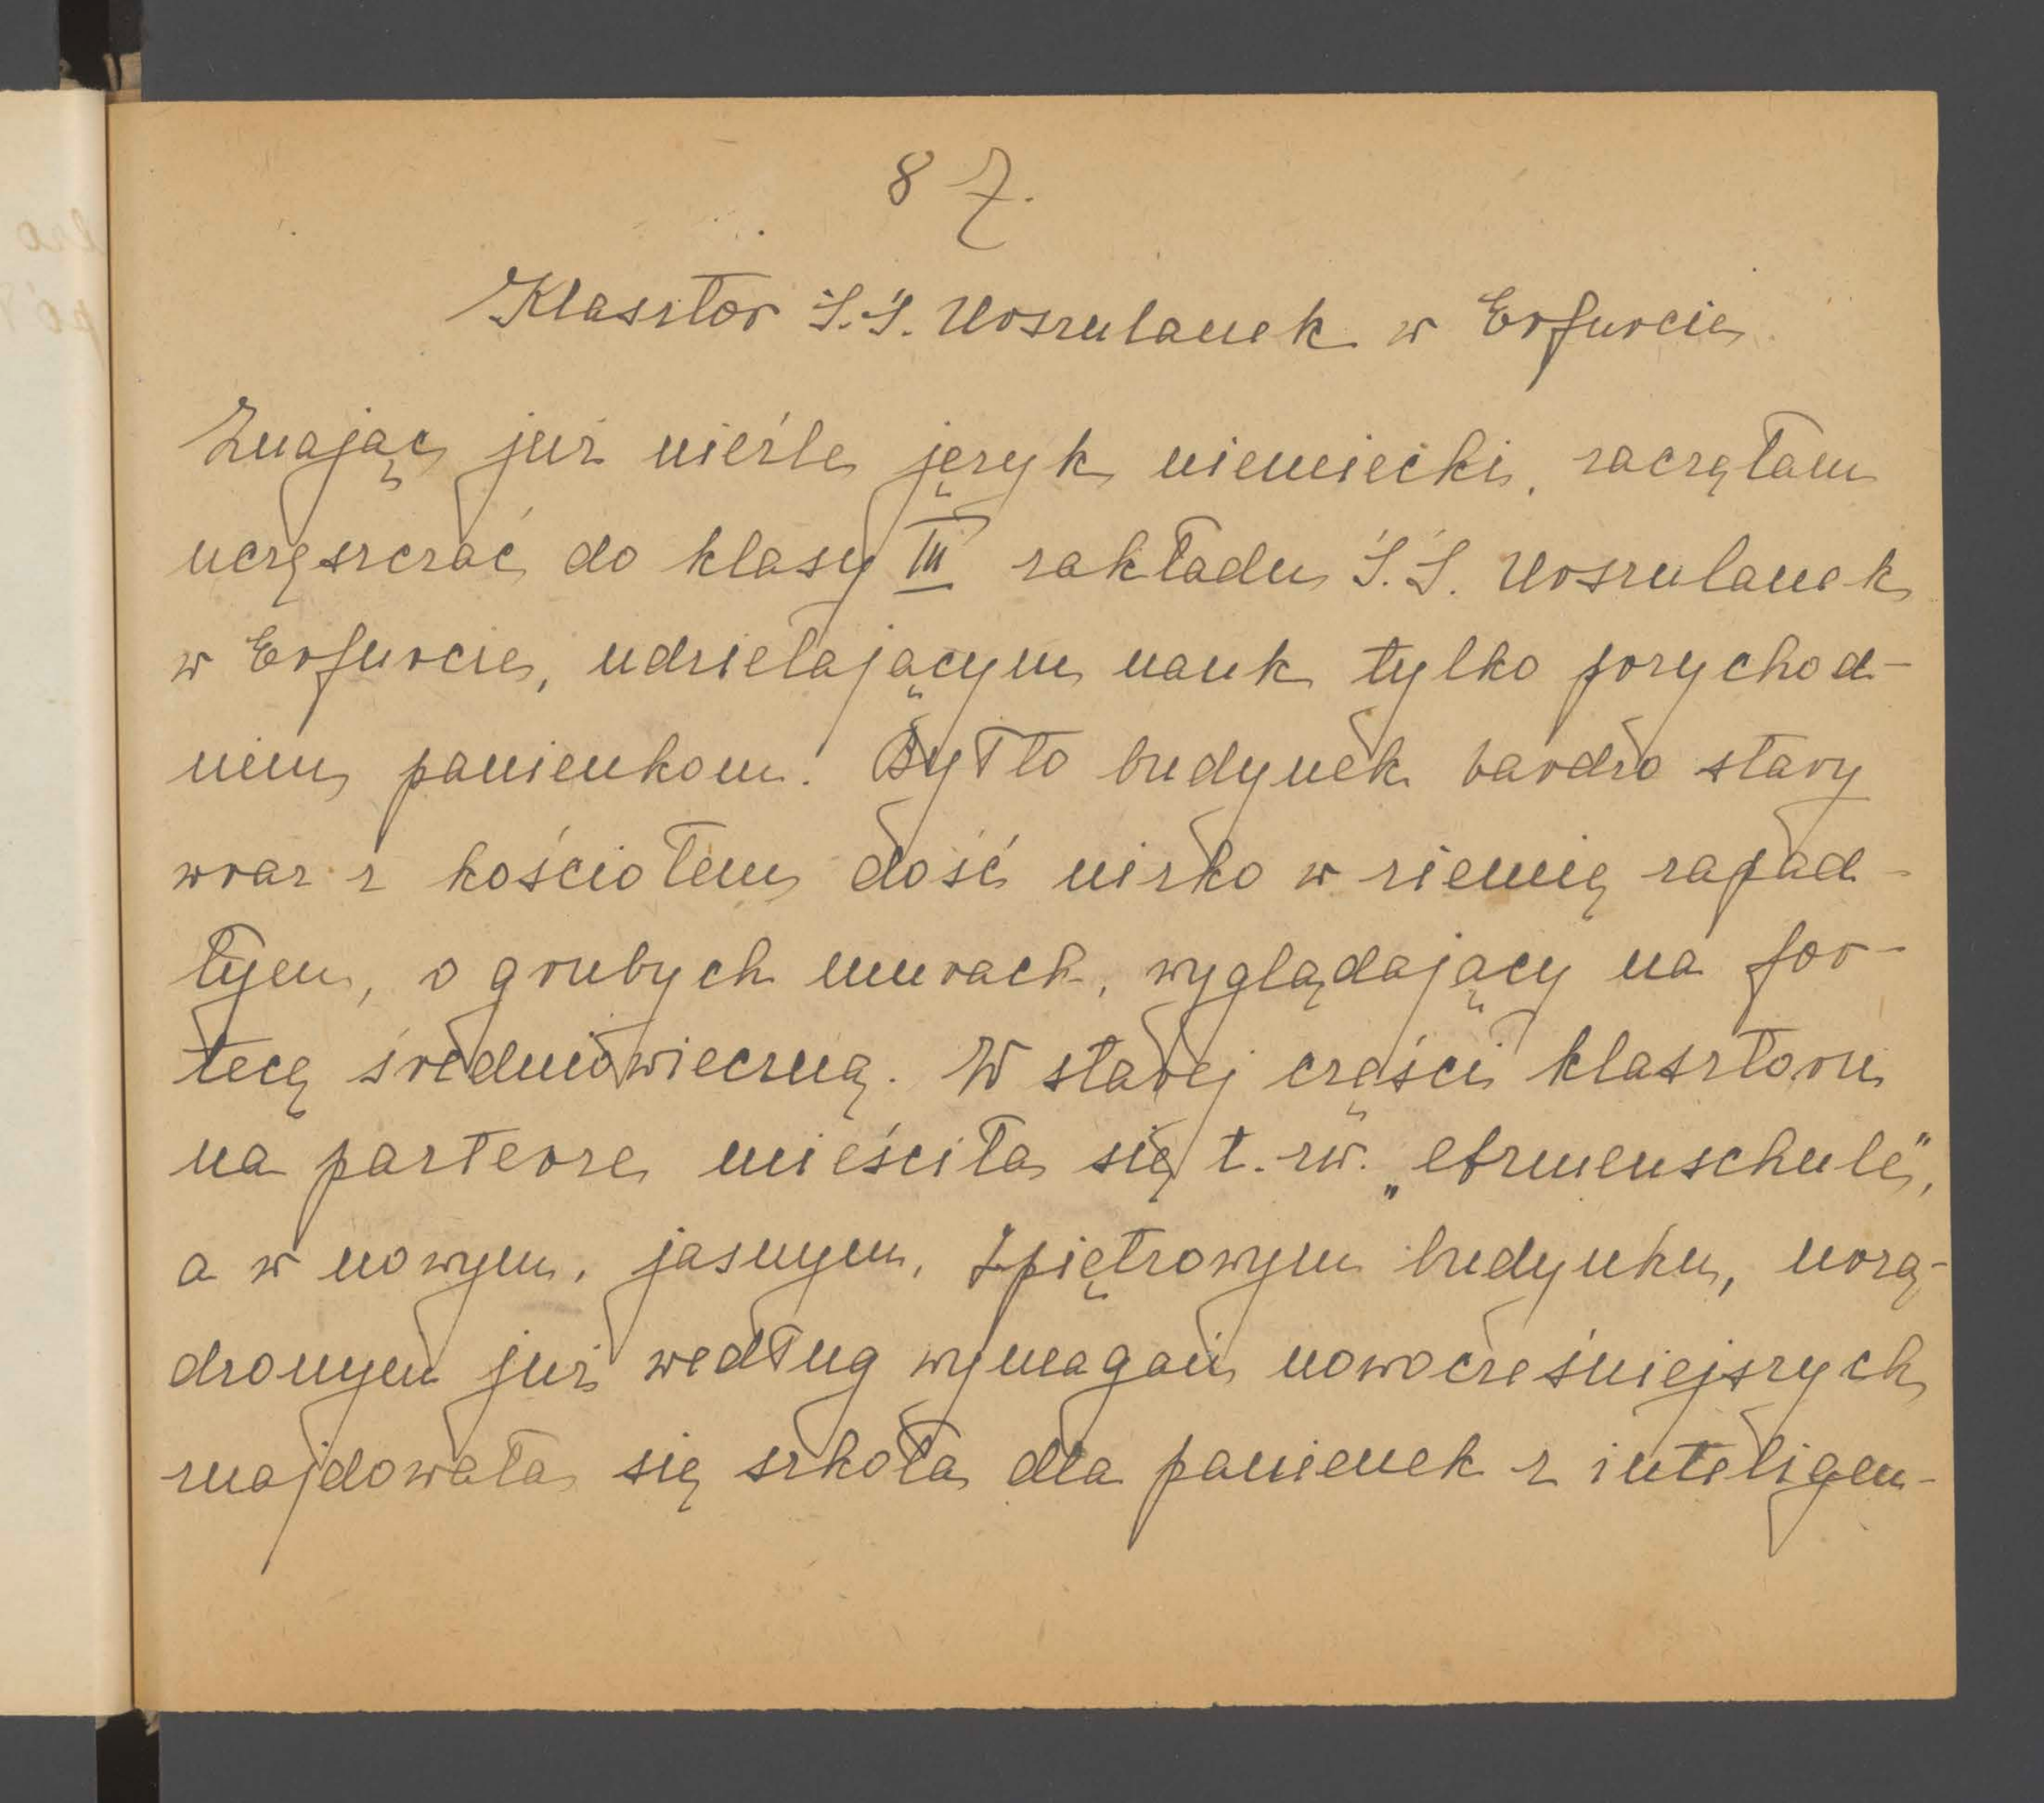 87.
Klasztor S.S. Urszulanek w Erfurcie
Znając już nieźle język niemiecki, zaczęłam
uczęszczać do klasy III zakładu S.S. Urszulanek
w Erfurcie, udzielającym nauk tylko przychod-
nim panienkom. Był to budynek bardzo stary
wraz z kościołem dość nisko w ziemię zapad-
łym, o grubych murach, wyglądający na for-
tecę średniowieczną. W starej części klasztoru
na parterze mieściła się t. zw. „Armenschule",
a w nowym, jasnym, piętrowym budynku, urzą-
dzonym już według wymagań nowocześniejszych
znajdowała się szkoła dla panienek z inteligen-